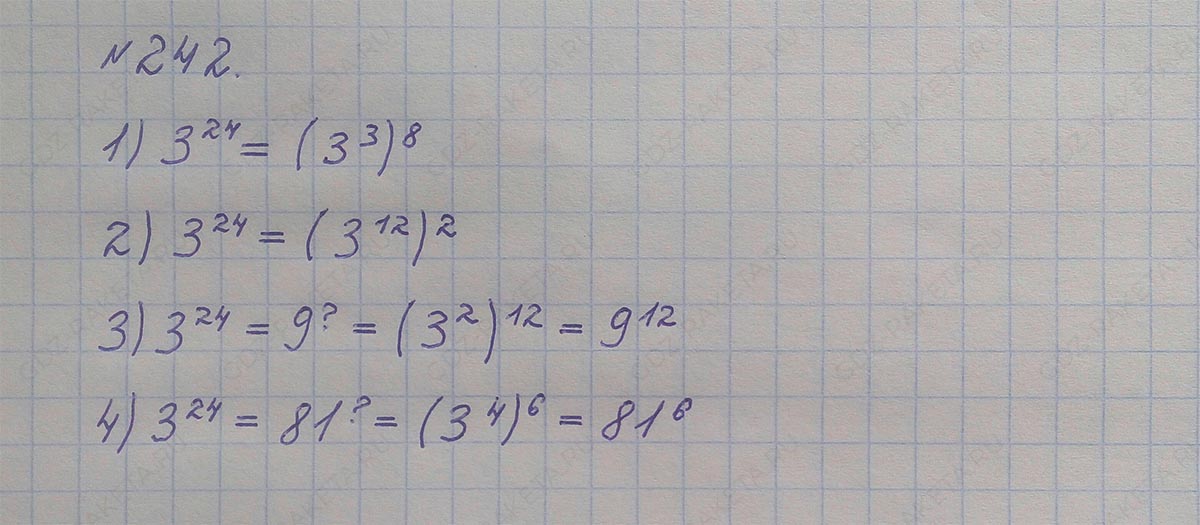 №242.
1) 3²⁴ = (3³)⁸
2) 3²⁴ = (3¹²)²
3) 3²⁴ = 9^? = (3²)¹² = 9¹²
4) 3²⁴ = 81^? = (3⁴)⁶ = 81⁶
GDZ-RAKETA.RU